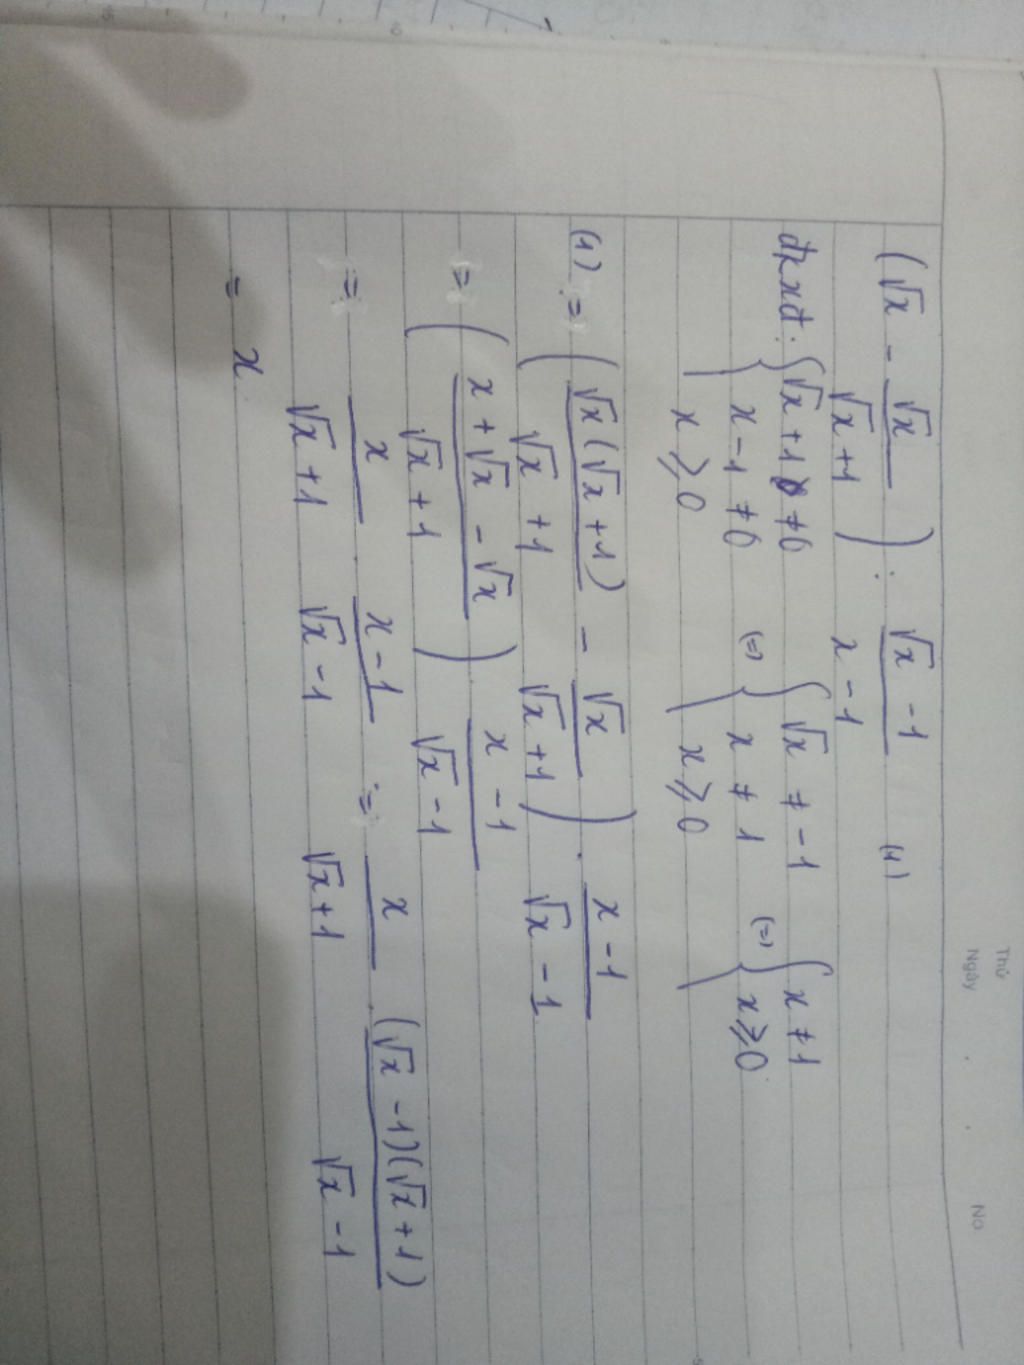 Thứ
Ngày . . No.
(√x - √x/(√x+1)) : (√x - 1)/(x - 1) (1)
đkxđ: { √x + 1 ≠ 0 (=) { √x ≠ -1 (=) { x ≠ 1
x - 1 ≠ 0 x ≠ 1 x ≥ 0
x ≥ 0 x ≥ 0
(1) = (√x(√x + 1)/(√x + 1) - √x/(√x + 1)) . (x - 1)/(√x - 1)
= ((x + √x - √x)/(√x + 1)) . (x - 1)/(√x - 1)
= x/(√x + 1) . (x - 1)/(√x - 1) = x/(√x + 1) . (√x - 1)(√x + 1)/(√x - 1)
= x